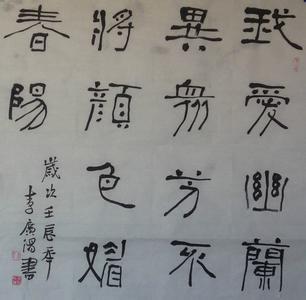 我愛幽蘭
異眾芳不
將顏色媚
春陽
歲次壬辰年
李廣澤書